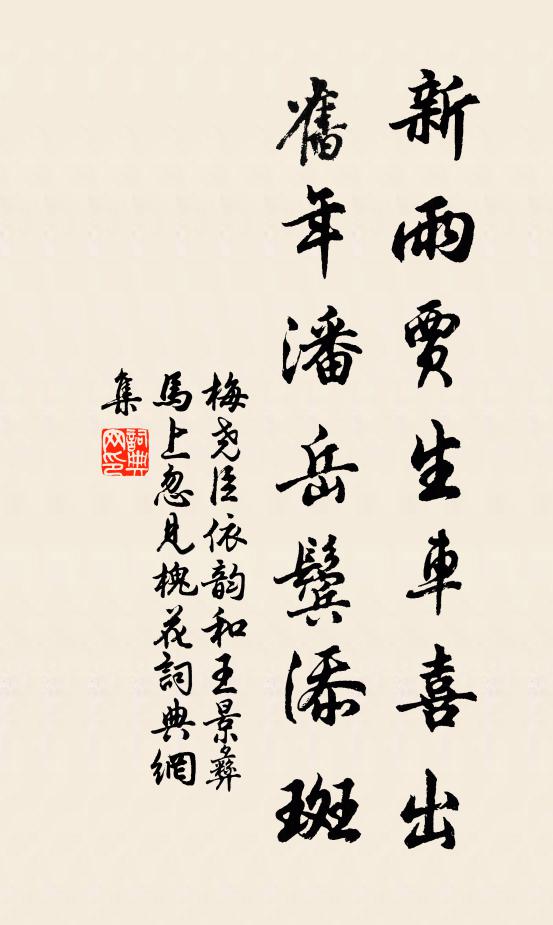 新雨賈生車喜出
舊年潘岳鬢添斑
梅尧臣依韵和王景彝
馬上忽見槐花詞典網
集
詞典
网印